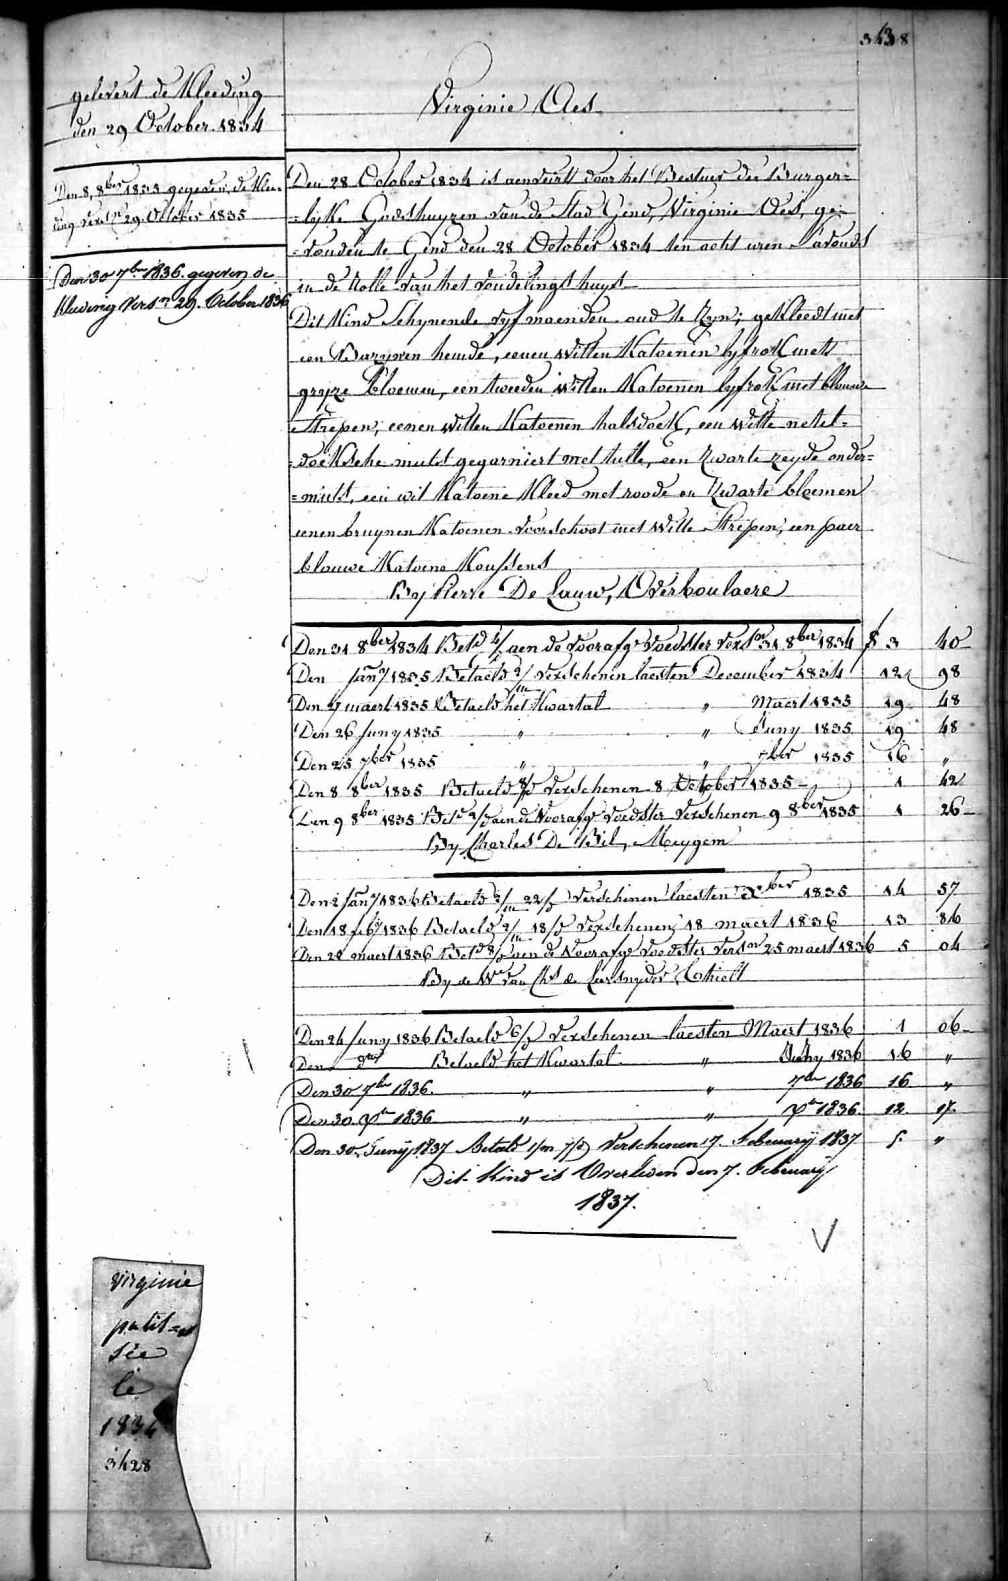 3438
gelevert de Kleeding
den 29 October 1834
Den 8, 8ber 1835 gegeven, de Klee-
ding vers.n 29 October 1835
Den 30 7ber 1836. gegeven de
Kleeding vers.n 29. October 1836
Virginie Oes
Den 28 October 1834 is aenveirt door het Bestuer der Burger=
=lyke Godshuyzen van de Stad Gend, Virginie Oes, ge=
=vonden te Gend den 28 October 1834 ten acht uren s'avonds
in de Rolle van het vondelingshuys
Dit Kind Schynende vyf maenden oud te Zyn; gekleedt met
een Barynen hemde, eenen witten Katoenen lyfrok met
gryze bloemen, een tweeden witten Katoenen lyfrok met blauwe
Strepen, eenen witten Katoenen halsdoek, een witte netel=
=doeksche muts gegarniert met tulle, een Zwarte zeyde onder=
=muts, een wit Katoene Kleed met roode en Zwarte bloemen
eenen bruynen Katoenen voorschoot met witte Strepen, een paer
blauwe Katoene Koussens
By Pierre De Lauw, Overboulaere
Den 31 8ber 1834 Bet.d aen de voorafg.e voedster vers.n 31 8ber 1834 3 40
Den Jan.y 1835 Betaeld 2/m verschenen laesten December 1834 12 98
Den 17 maert 1835 Betaeld het Kwartal " Maert 1835 19 48
Den 26 Juny 1835 " " Juny 1835 19 48
Den 25 7ber 1835 " " 7ber 1835 16 "
Den 8 8ber 1835 Betaeld 8/d verschenen 8 October 1835 1 42
Den 9 8ber 1835 Bet.d aen de Voorafg.e voedster verschenen 9 8ber 1835 1 26
By Charles De Bil, Meygem
Den 2 Jan.y 1836 Betaeld 2/m 22/d verschenen laesten Xber 1835 14 57
Den 18 1836 Betaeld 2/m 18/d verschenen 18 maert 1836 13 86
Den 28 maert 1836 Bet.d aen de voorafg.e voedster vers.n 25 maert 1836 5 04
By de We van Chs de
Den 24 Juny 1836 Betaeld 6/d verschenen laesten Maert 1836 1 06
Den d.to Betaeld het Kwartal " Juny 1836 16 "
Den 30 7ber 1836. " " 7ber 1836 16 "
Den 30. Xber 1836 " " Xber 1836. 12 17
Den 30. Juny 1837 Betald 1/m 7/d verschenen 7. February 1837 5 "
Dit Kind is Overleden den 7. February
1837.
virginie
batit=
sée
le
1834
3428